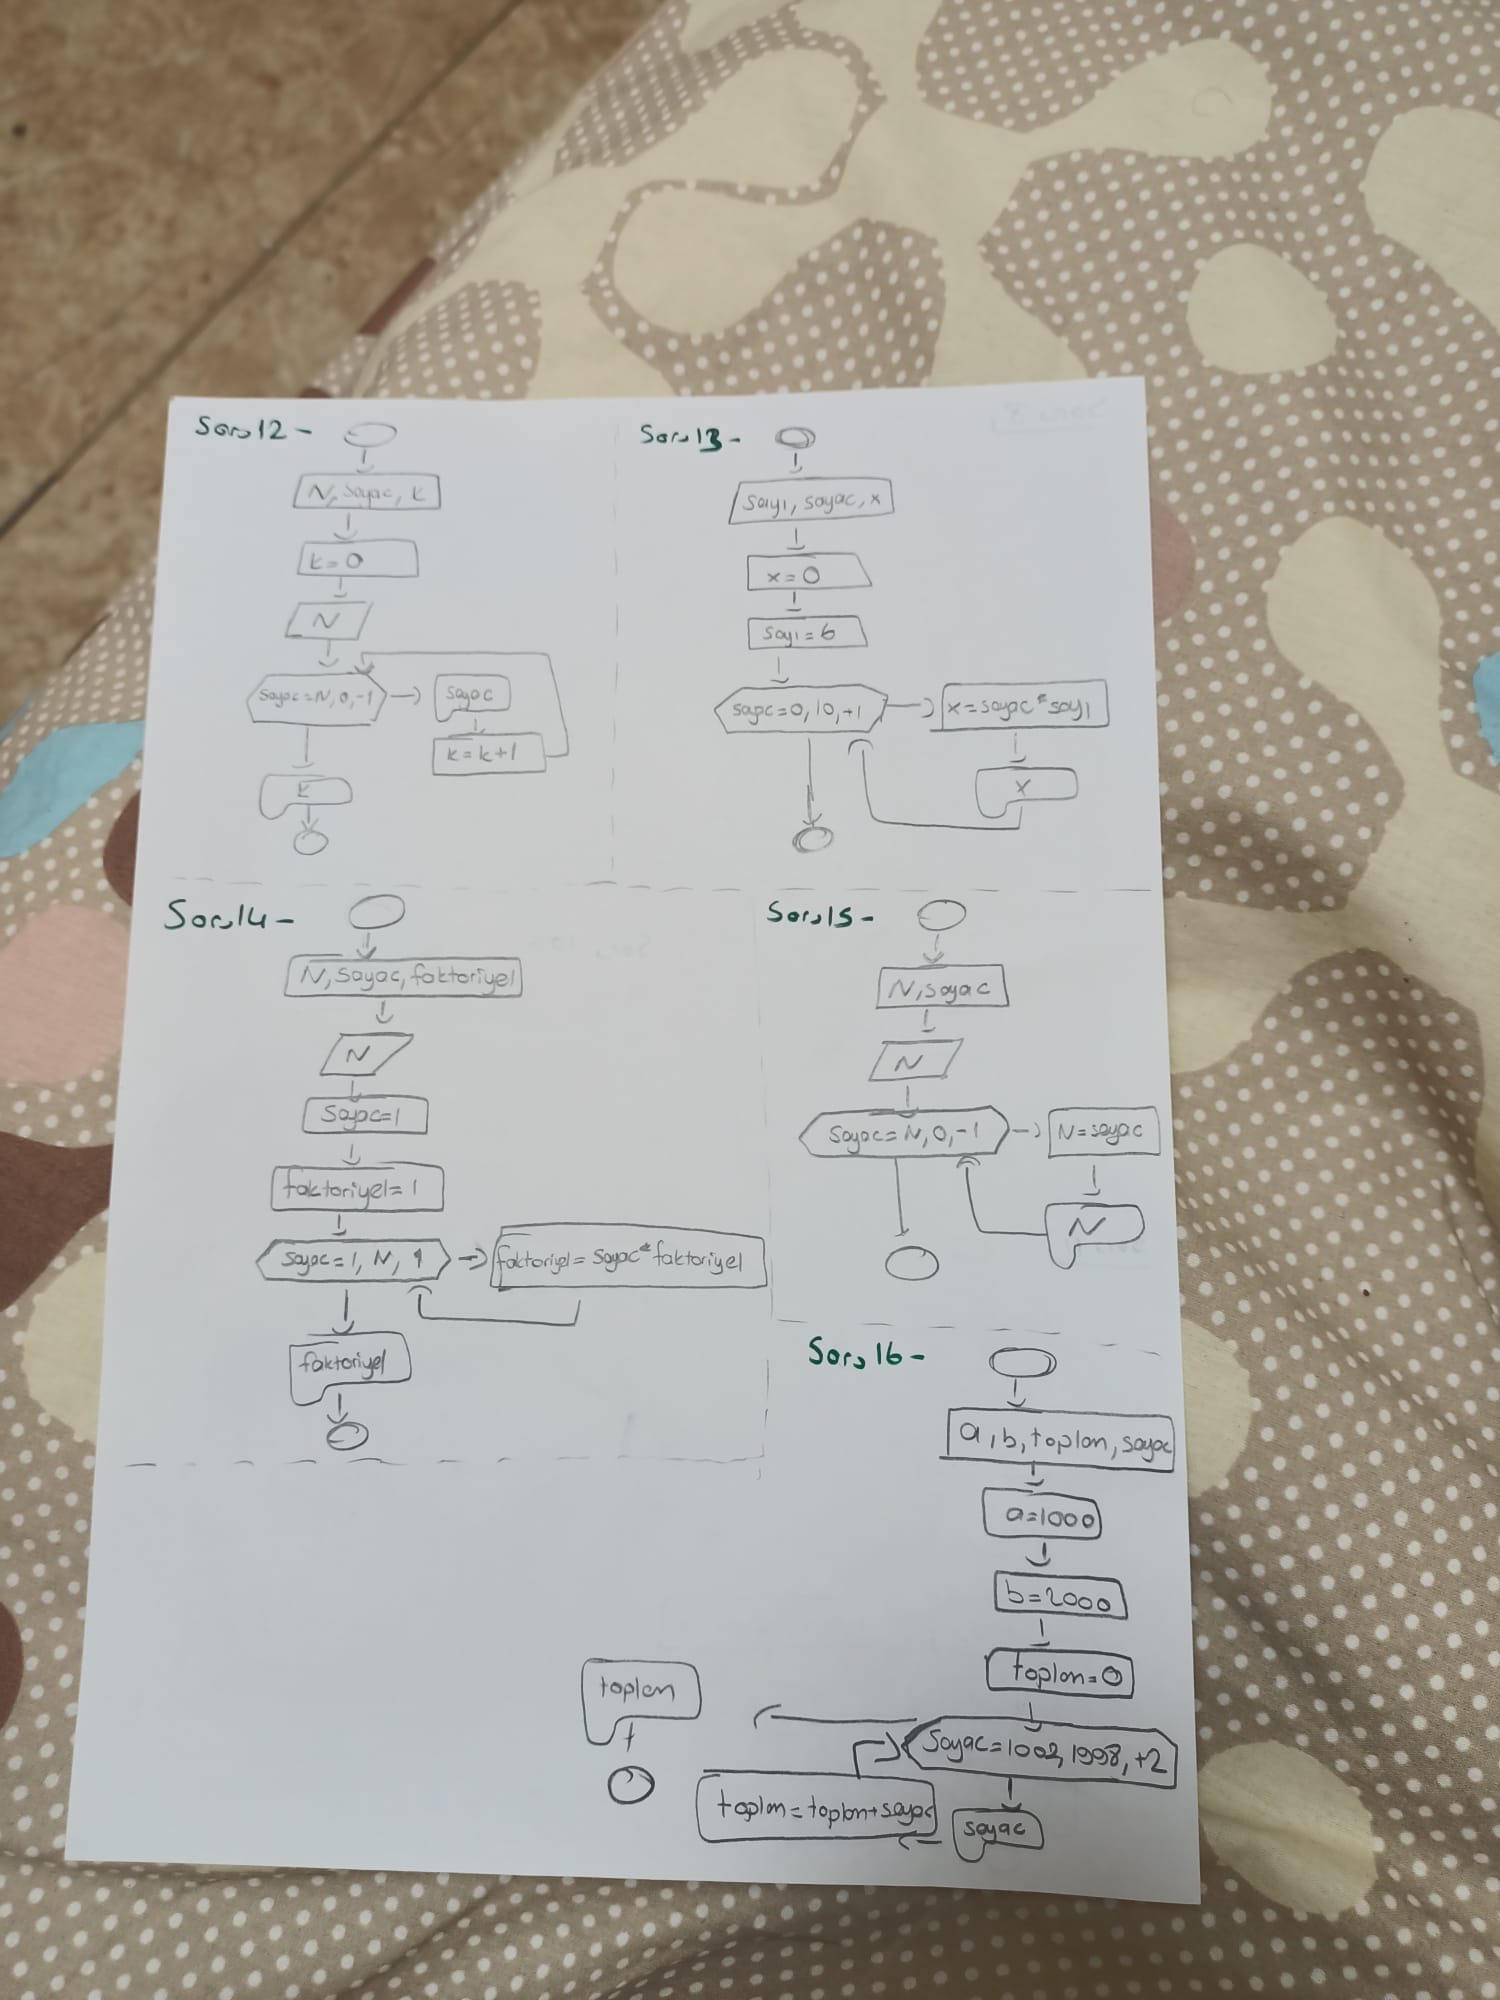 Soru12-
N, sayac, k
k=0
N
sayac=N,0,-1
sayac
k=k+1
k
Soru13-
sayı, sayac, x
x=0
sayı=6
sayac=0,10,+1
x=sayac*sayı
x
Soru14-
N, sayac, faktoriyel
N
Sayac=1
faktoriyel=1
sayac=1, N, 1
faktoriyel=sayac*faktoriyel
faktoriyel
Soru15-
N, sayac
N
sayac=N,0,-1
N=sayac
N
Soru16-
a, b, toplam, sayac
a=1000
b=2000
toplam=0
Sayac=1002,1998,+2
sayac
toplam=toplam+sayac
toplam